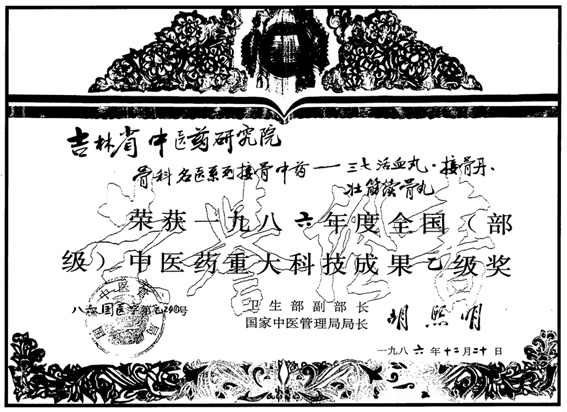 吉林省中医药研究院
骨科名医系列接骨中药——三七活血丸·接骨丹、
壮筋续骨丸
荣获一九八六年度全国（部
级）中医药重大科技成果乙级奖
卫生部副部长
国家中医管理局局长 胡熙明
一九八六年十二月二十日